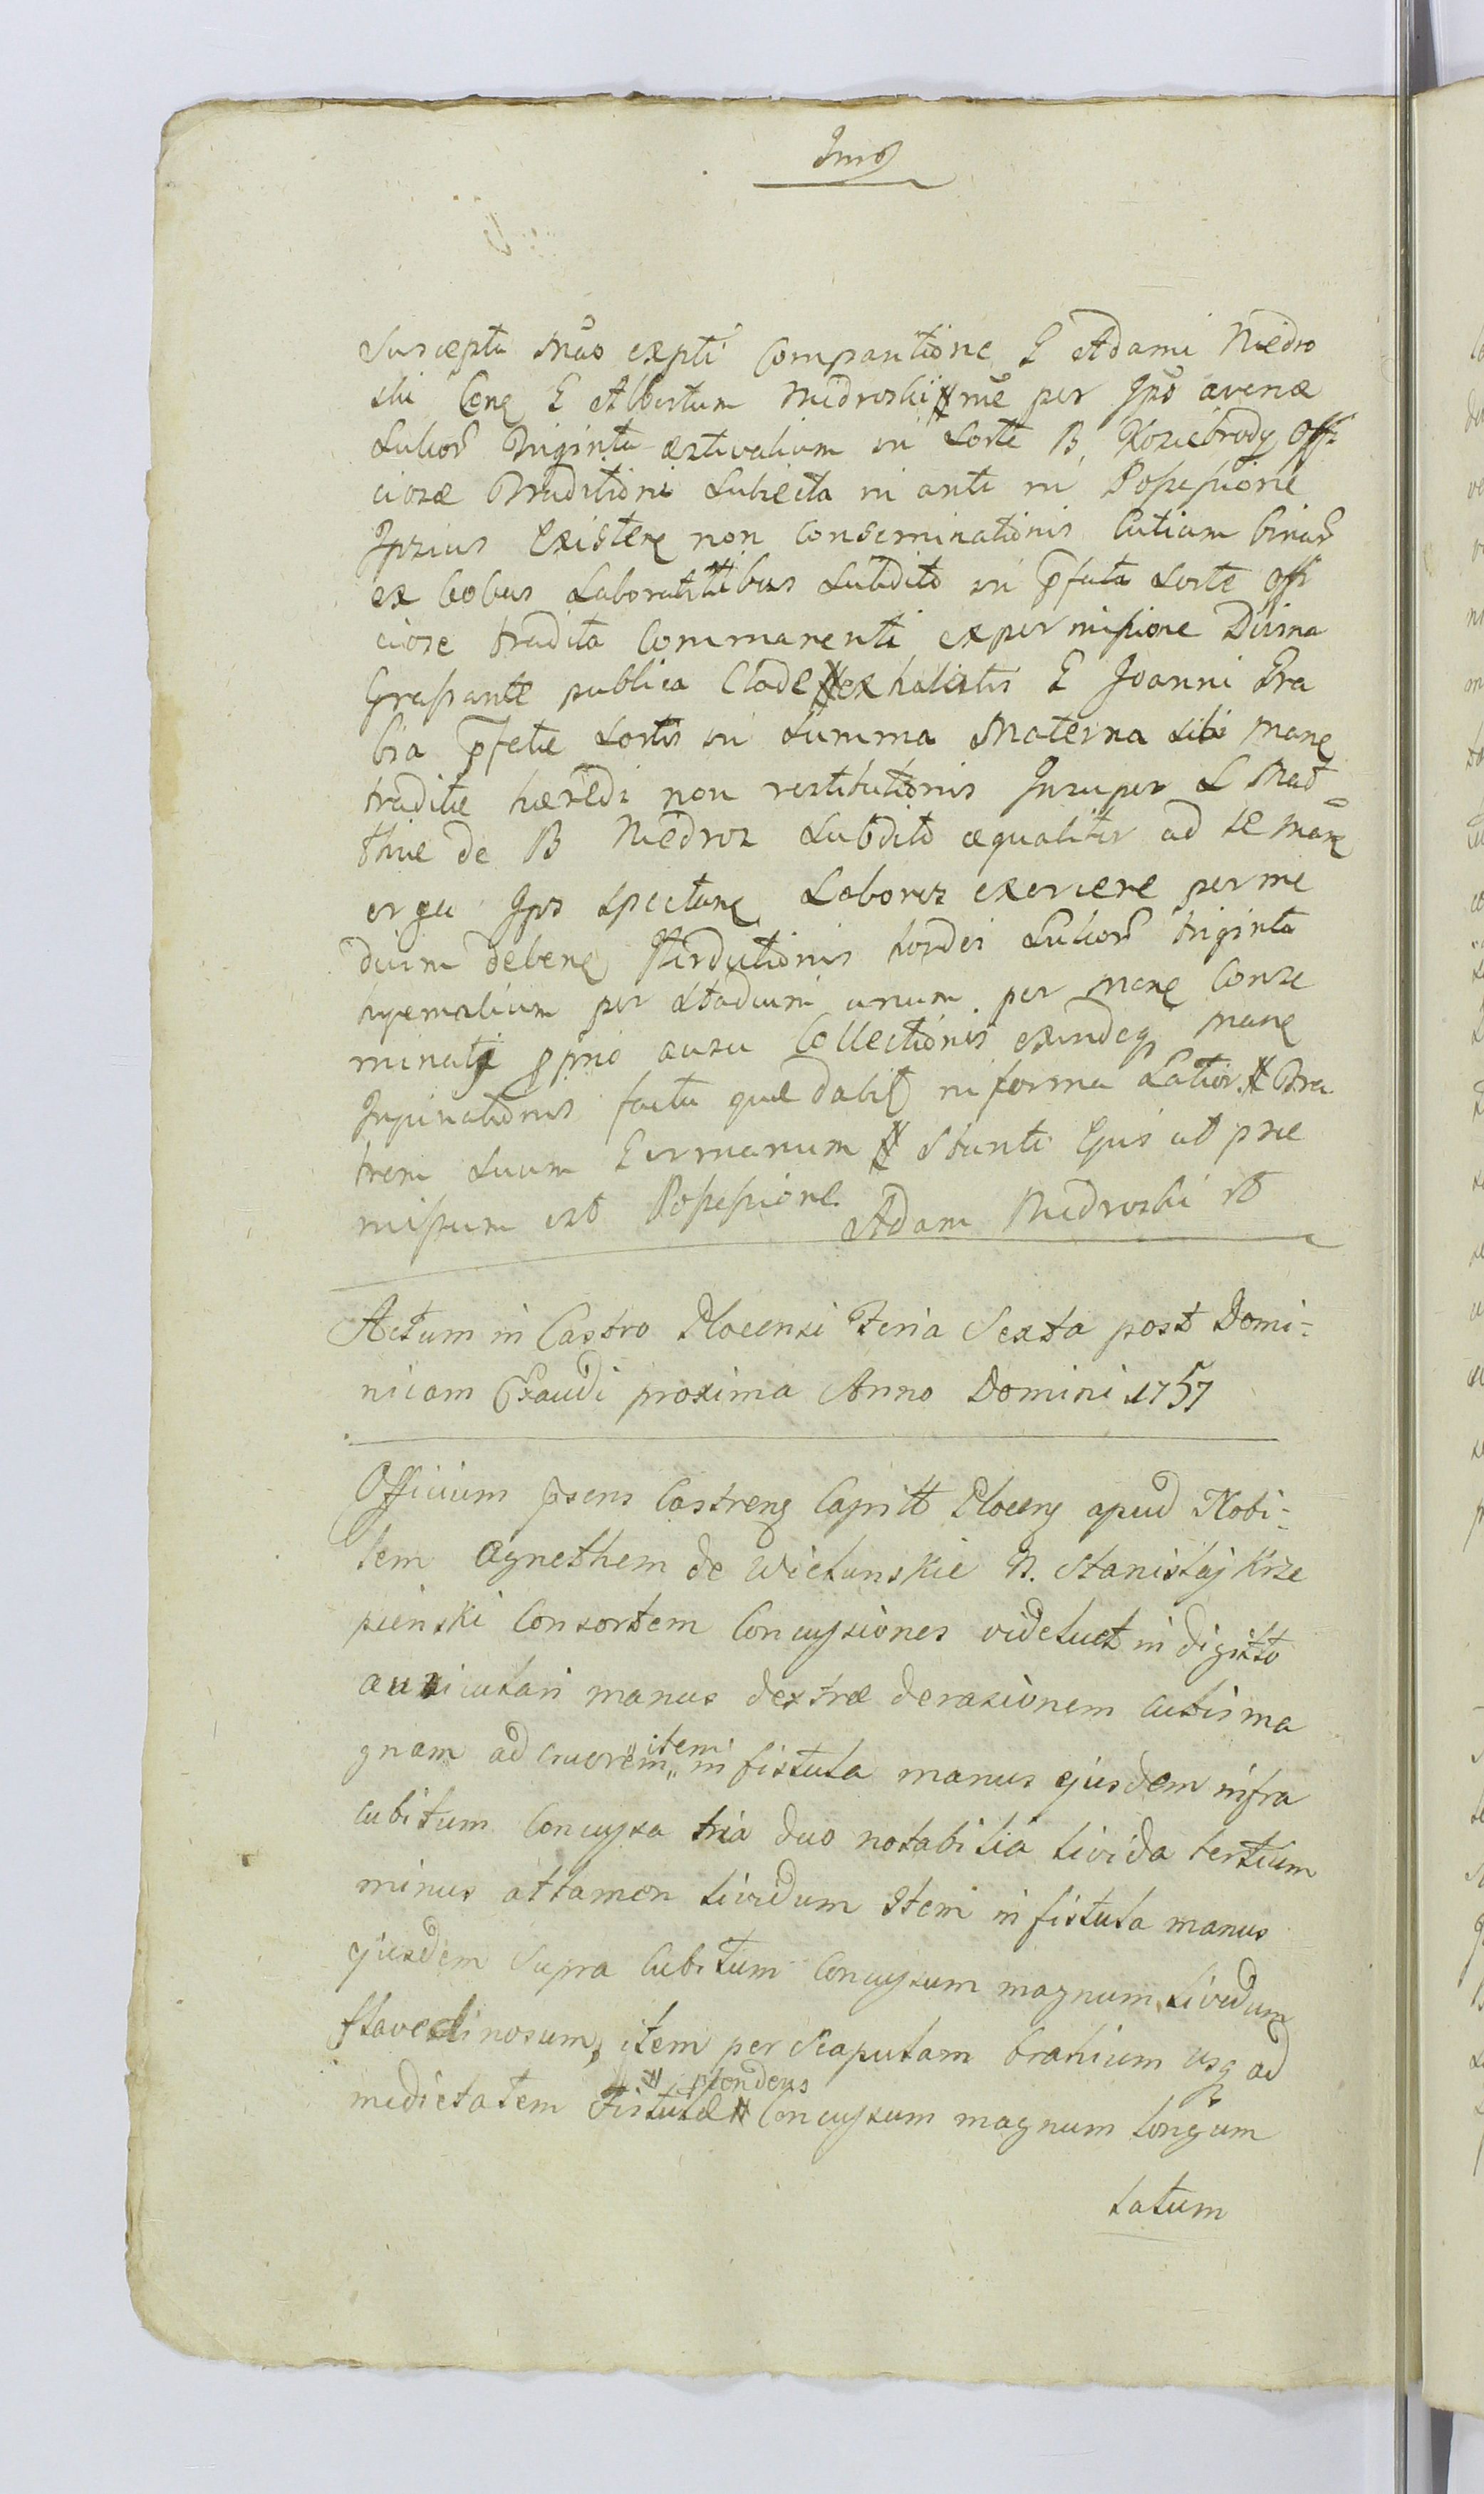 suscepta expti Comparitione G Adami Niedro
ski Cong G Albertum Niedroski per Ips avenæ
Sulcor Triginta æstivalium in Sorte B, Koziebrody Offi
ciosæ Traditioni Subiecta in ante in Possessione
Ipsius Existen non Conseminationis Cutium binar
ex bobus Laborantibus Subdito in pfata Sorte offi
ciose tradita Commanenti ex permissione Divina
Grassante publica Clade exhalatis G Joanni Gra
bia pfatæ Sortis in Summa Materna sibi
traditæ hæredi non restitutionis Insuper L Mat=
thiæ de B Niedroz Subdito æqualiter ad se
erga Ips Spectan Labores exercere per me
dium deben Perductionis hordei Sulcor triginta
hyemalium per Stadium unum per Conse
minat pprio ausu Collectionis exindeq
factu in forma Latior Fra
trem Suum Germanum Stante Ejus ut præ
missum est Possessione Adam Niedroski
Actum in Castro Plocensi Feria Sexta post Domi-
nicam Exaudi proxima Anno Domini 1757
Officium psens Castren Capitt Plocen apud Nobi-
lem Agnethem de Wielunskie N. Stanislaj Krze
pienski Consortem Concussiones videlicet in digitto
auriculari manus dextræ derasionem cutis ma
gnam ad cruorem item in fistula manus ejusdem infra
cubitum Concussa tria duo notabilia livida tertium
minus attamen lividum Item in fistula manus
ejusdem supra Cubitum Concussum magnum lividum
flavedinosum, item per Scapulam brahium usq ad
medietatem Fistulæ ptendens Concussum magnum longum
latum